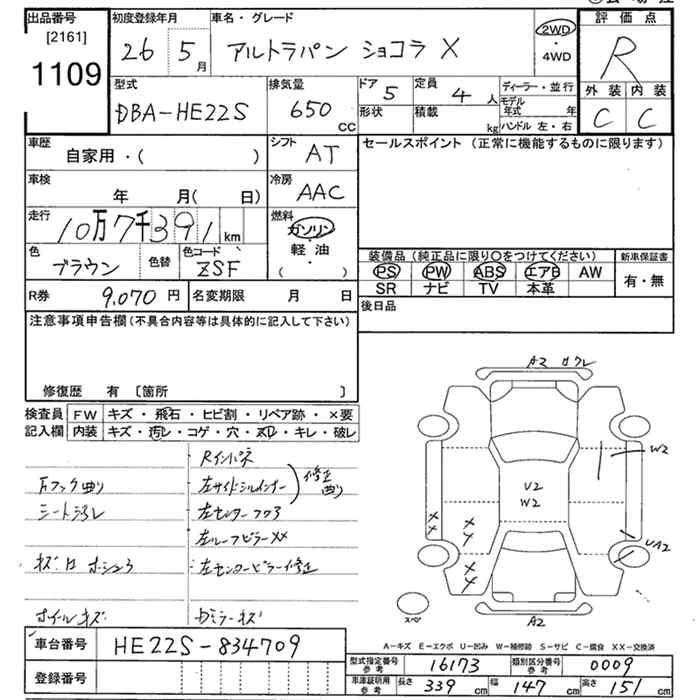 出品番号 初度登録年月 車名・グレード 2WD 評価点
[2161] 26 5月 アルトラパン ショコラ X ・ R
1109 4WD
型式 排気量 ドア 定員 ディーラー・並行 外装 内装
DBA-HE22S 650 CC 5 4人 モデル年式 年 C C
形状 積載 kg ハンドル 左・右
車歴 自家用・( ) シフト AT セールスポイント (正常に機能するものに限ります)
車検 年 月( 日) 冷房 AAC
走行 10万7千391 km 燃料 ガソリン・軽油・( )
色 ブラウン 色替 色コード ZSF 装備品(純正品に限り○をつけてください) 新車保証書
PS PW ABS エアB AW 有・無
SR ナビ TV 本革
R券 9,070円 名変期限 月 日 後日品
注意事項申告欄(不具合内容等は具体的に記入して下さい)
修復歴 有 [箇所 ]
A2
検査員 FW キズ・飛石・ヒビ割・リペア跡・×要
記入欄 内装 キズ・汚レ・コゲ・穴・スレ・キレ・破レ
Rインパネ
左サイドシルインナー 修正 曲り
W2
U2
W2
××
UA2
左ルーフピラーXX
左センターピラー修正
××
ホイールキズ
スペ
A2
車台番号 HE22S-834709
A-キズ E-エクボ U-凹み W-補修跡 S-サビ C-腐食 XX-交換済
登録番号 型式指定番号 参考 16173 類別区分番号 参考 0009
車庫証明用 参考 長さ 339 cm 幅 147 cm 高さ 151 cm